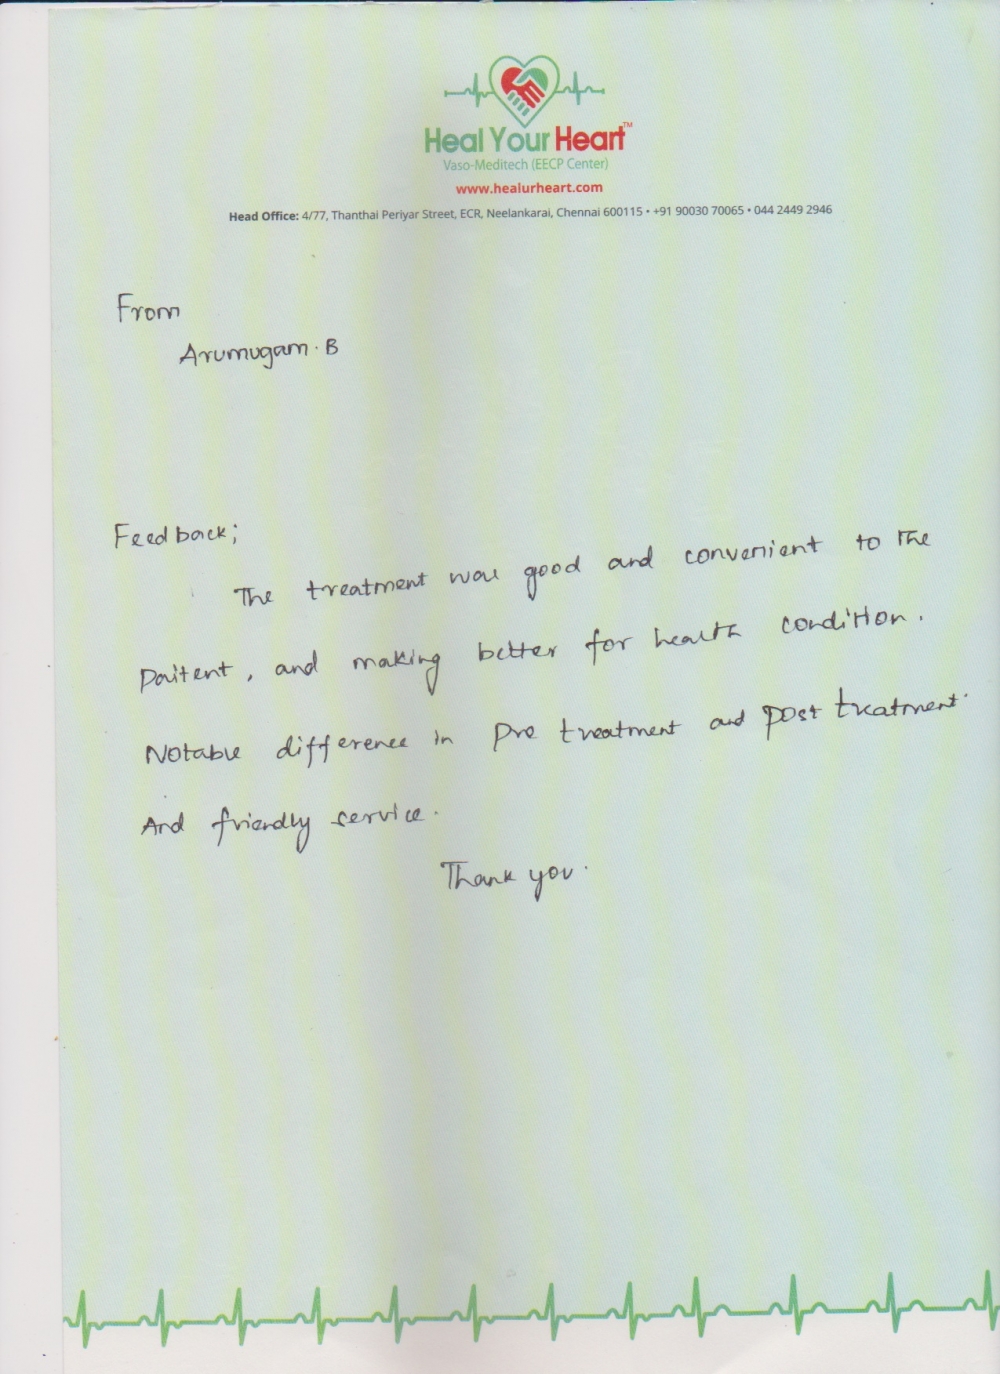 Heal Your Heart™
Vaso-Meditech (EECP Center)
www.healurheart.com
Head Office: 4/77, Thanthai Periyar Street, ECR, Neelankarai, Chennai 600115 • +91 90030 70065 • 044 2449 2946
From
Arumugam. B
Feedback;
The treatment was good and convenient to the
Paitent, and making better for health condition.
Notable difference in Pre treatment and post treatment.
And friendly service.
Thank you.